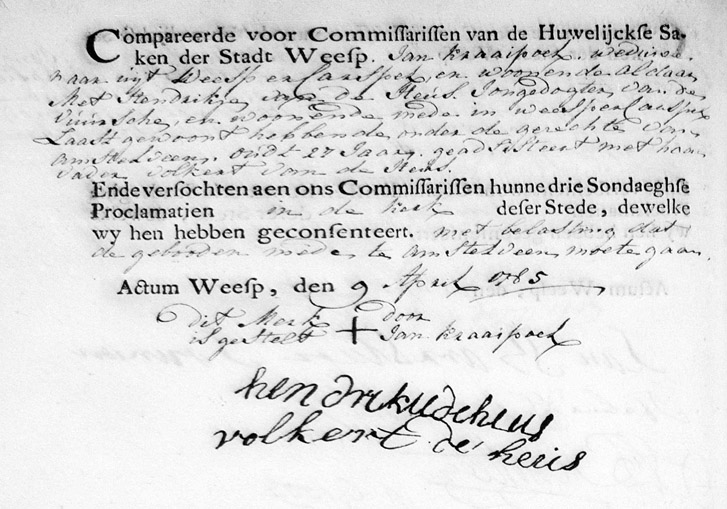 Compareerde voor Commissarissen van de Huwelijckse Sa-
ken der Stadt Weesp. Jan Kraaipoel, weduwe-
naar uijt Weesper Carspel, en woonende aldaar
Met Hendrikje van de Heus Jongedogter van de
Vuursche, en woonende mede in Weesper Carspel
Laast gewoont hebbende onder de gerechte van
amstelveen, oudt 27 Jaar, geadsisteert met haar
Vader Volkert van de Heus.
Ende versochten aen ons Commissarissen hunne drie Sondaeghse
Proclamatien in de kerk deser Stede, dewelke
wy hen hebben geconsenteert. met belasting dat
de geboden mede te amstelveen moete gaan.
Actum Weesp, den 9 April 1785,
Dit Merk door
is gestelt + Jan Kraaipoel
hendrikudeheus
volkert de heus